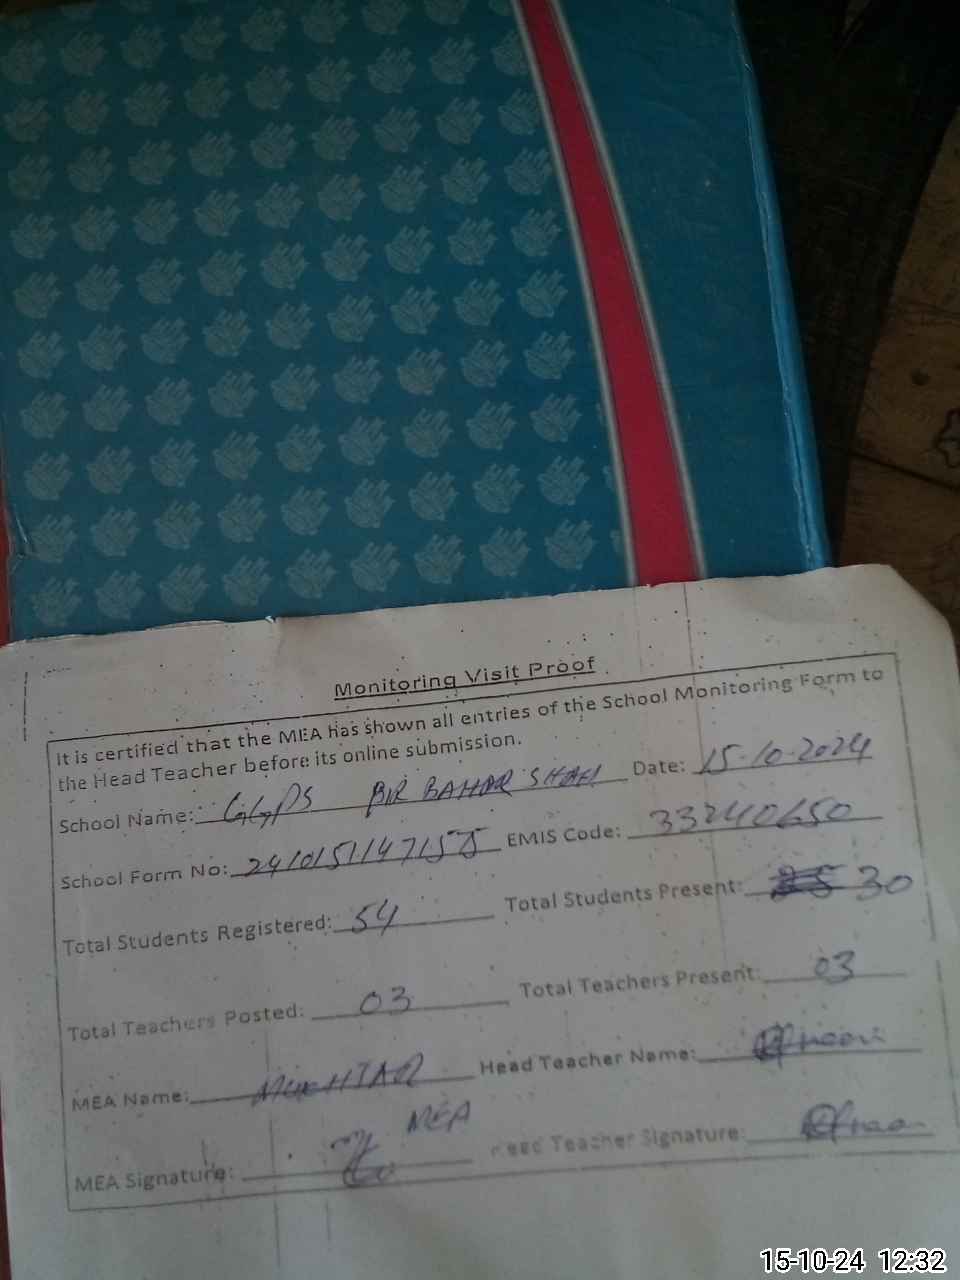 Monitoring Visit Proof
It is certified that the MEA has shown all entries of the School Monitoring Form to
the Head Teacher before its online submission.
School Name: GGPS BIR BAHAR SHAH Date: 15-10-2024
School Form No: 241015114715 EMIS Code: 33240650
Total Students Registered: 54 Total Students Present: 30
Total Teachers Posted: 03 Total Teachers Present: 03
MEA Name: MUKHTAR Head Teacher Name:
MEA
MEA Signature: Head Teacher Signature:
15-10-24 12:32